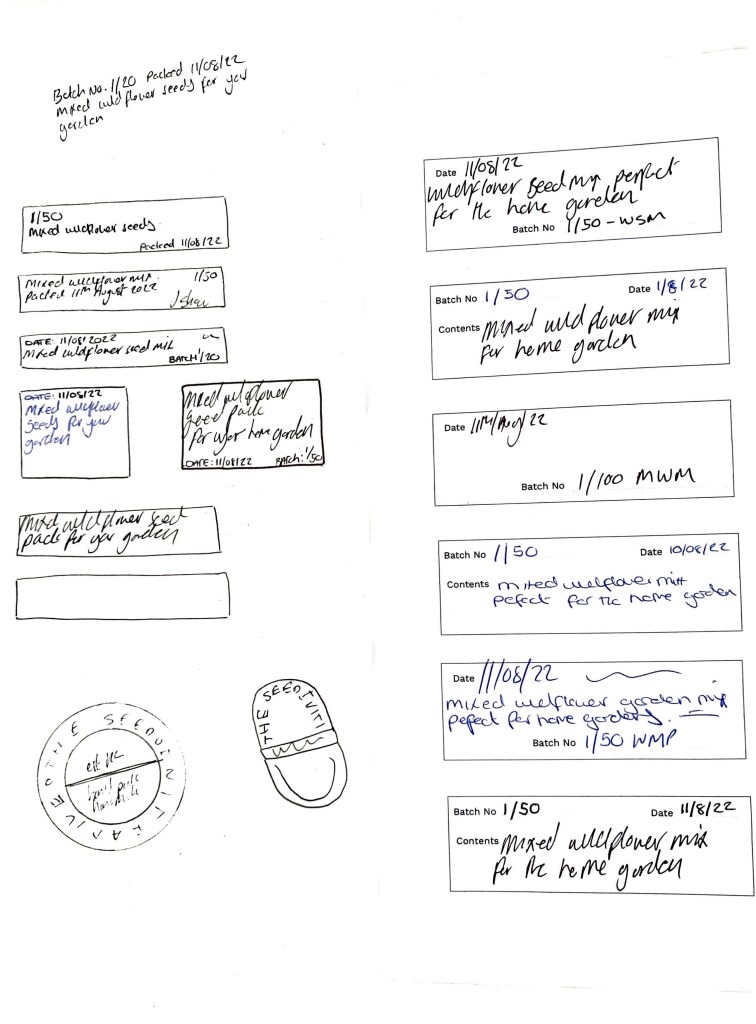 Batch No. 1/20 Packed 11/08/22
mixed wildflower seeds for your
garden
1/50
Mixed wildflower seeds.
Packed 11/08/22
Mixed wildflower mix. 1/50
Packed 11th August 2022
DATE: 11/08/2022
Mixed wildflower seed mix
BATCH 1/20
DATE: 11/08/22
Mixed wildflower
seeds for your
garden
Mixed wildflower
seed pack
for your home garden
DATE: 11/08/22 BATCH: 1/50
Mixed wildflower seed
pack for your garden
THE SEED
est UK
THE SEED
Date 11/08/22
wildflower seed mix perfect
for the home garden
Batch No 1/50 - WSM
Batch No 1/50 Date 1/8/22
Contents Mixed wild flower mix
for home garden
Date 11th/Aug/22
Batch No 1/100 MWM
Batch No 1/50 Date 10/08/22
Contents mixed wildflower mix
pefect for the home garden
Date 11/08/22
mixed wildflower garden mix
pefect for home gardens.
Batch No 1/50 WMP
Batch No 1/50 Date 11/8/22
Contents Mixed wildflower mix
for the home garden